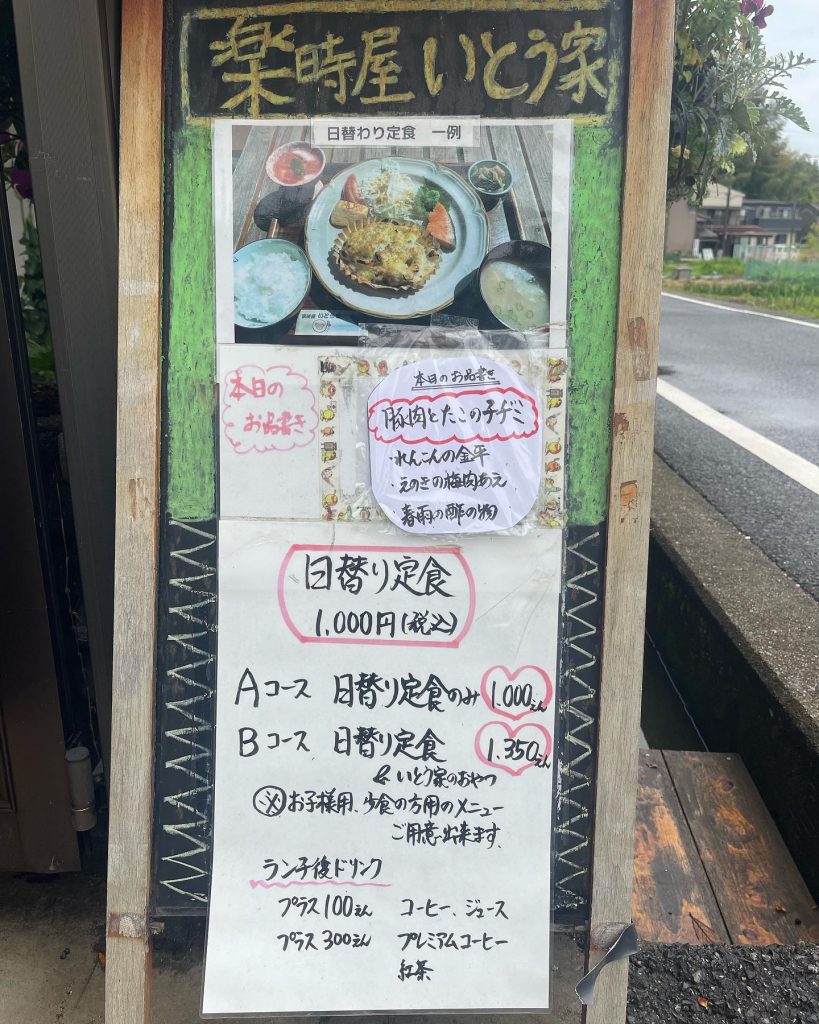 楽時屋 いとう家
日替わり定食 一例
本日の
お品書き
本日のお品書き
豚肉とたこのチヂミ
・れんこんの金平
・えのきの梅肉あえ
・春雨の酢の物
日替り定食
1.000円(税込)
Aコース 日替り定食のみ 1.000えん
Bコース 日替り定食 1.350えん
& いとう家のおやつ
※お子様用、少食の方用のメニュー
ご用意出来ます。
ランチ後ドリンク
プラス100えん コーヒー、ジュース
プラス300えん プレミアムコーヒー
紅茶